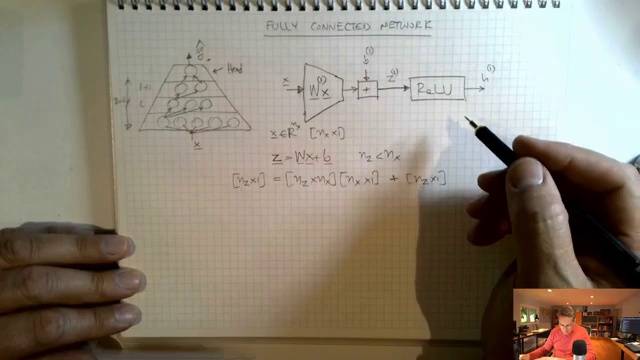 FULLY CONNECTED NETWORK
ŷ
Head
l+1
l
x
x
Wx^(1)
b^(1)
+
z^(1)
ReLU
h^(1)
x ∈ R^nx [nx x 1]
z = Wx + b nz < nx
[nz x 1] = [nz x nx] [nx x 1] + [nz x 1]